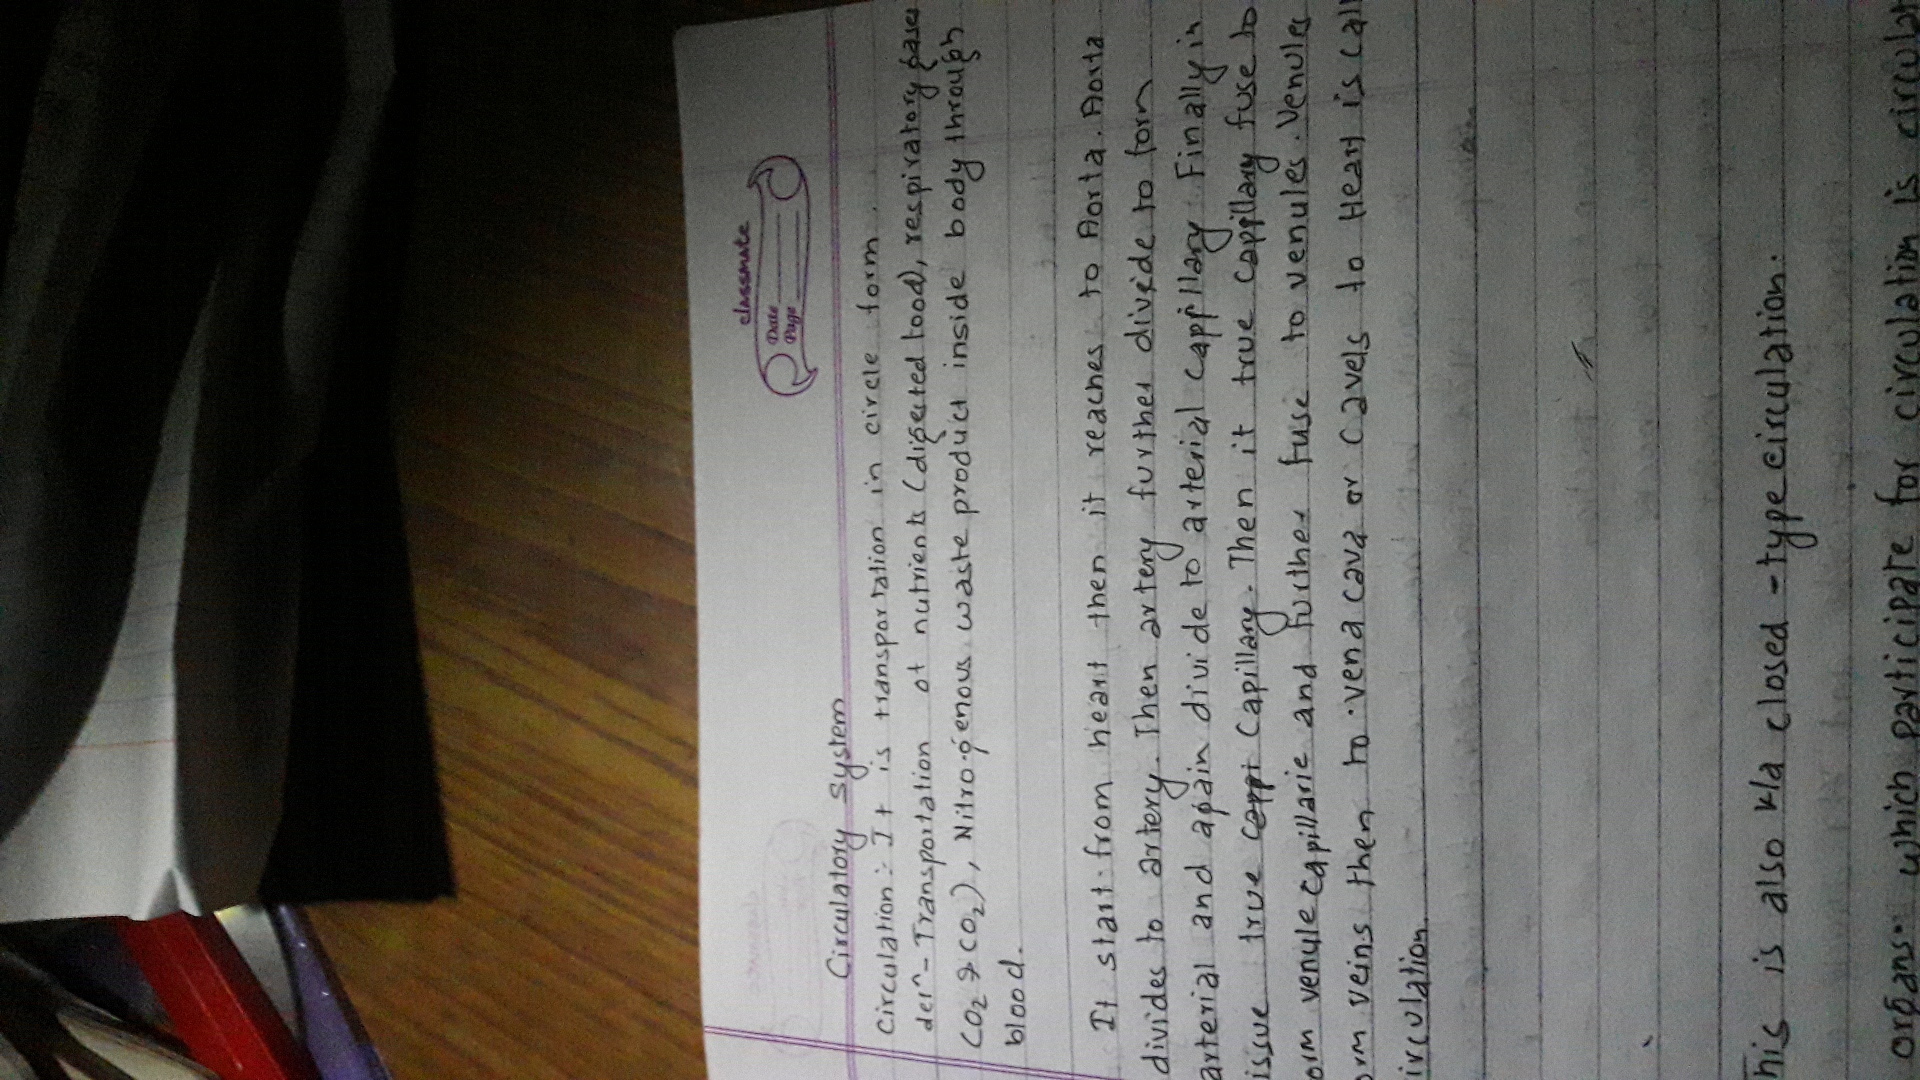 classmate
Date
Page
Circulatory System
Circulation:- It is transportation in circle form.
defn - Transportation of nutrients (digested food), respiratory gase
CO2 & CO2), Nitrogenous waste product inside body through
blood.
It start from heart then it reaches to Aorta. Aorta
divides to artery. Then artery further divide to form
arterial and again divide to arterial cappillary Finally in
issue true Capillary. Then it true cappillary fuse to
orm venule capillarie and further fuse to venules. Venules
orm veins then to vena cava or cavels to Heart is call
irculation.
his is also k/a closed-type circulation.
organs:- which participate for circulation is circular